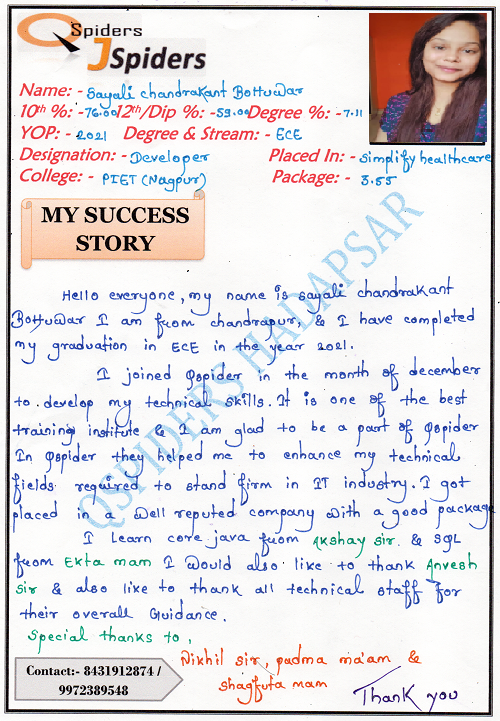 QSpiders
JSpiders
Name: - Sayali chandrakant Bottuwar
10th %: -76.00 12th/Dip %: -59.00 Degree %: -7.11
YOP: - 2021 Degree & Stream: - ECE
Designation: - Developer Placed In: - Simplify healthcare
College: - PIET (Nagpur) Package: - 3.55
MY SUCCESS
STORY
QSPIDERS HADAPSAR
Hello everyone, my name is Sayali chandrakant
Bottuwar I am from chandrapur, & I have completed
my graduation in ECE in the year 2021.
I joined Qspider in the month of december
to develop my technical skills. It is one of the best
training institute & I am glad to be a part of Qspider
In Qspider they helped me to enhance my technical
fields required to stand firm in IT industry. I got
placed in a well reputed company with a good package
I learn core java from Akshay sir. & SQL
from Ekta mam I would also like to thank Anvesh
sir & also like to thank all technical staff for
their overall Guidance.
Special thanks to,
Nikhil sir, padma ma'am &
shagfuta mam
Contact:- 8431912874 /
9972389548
Thank you